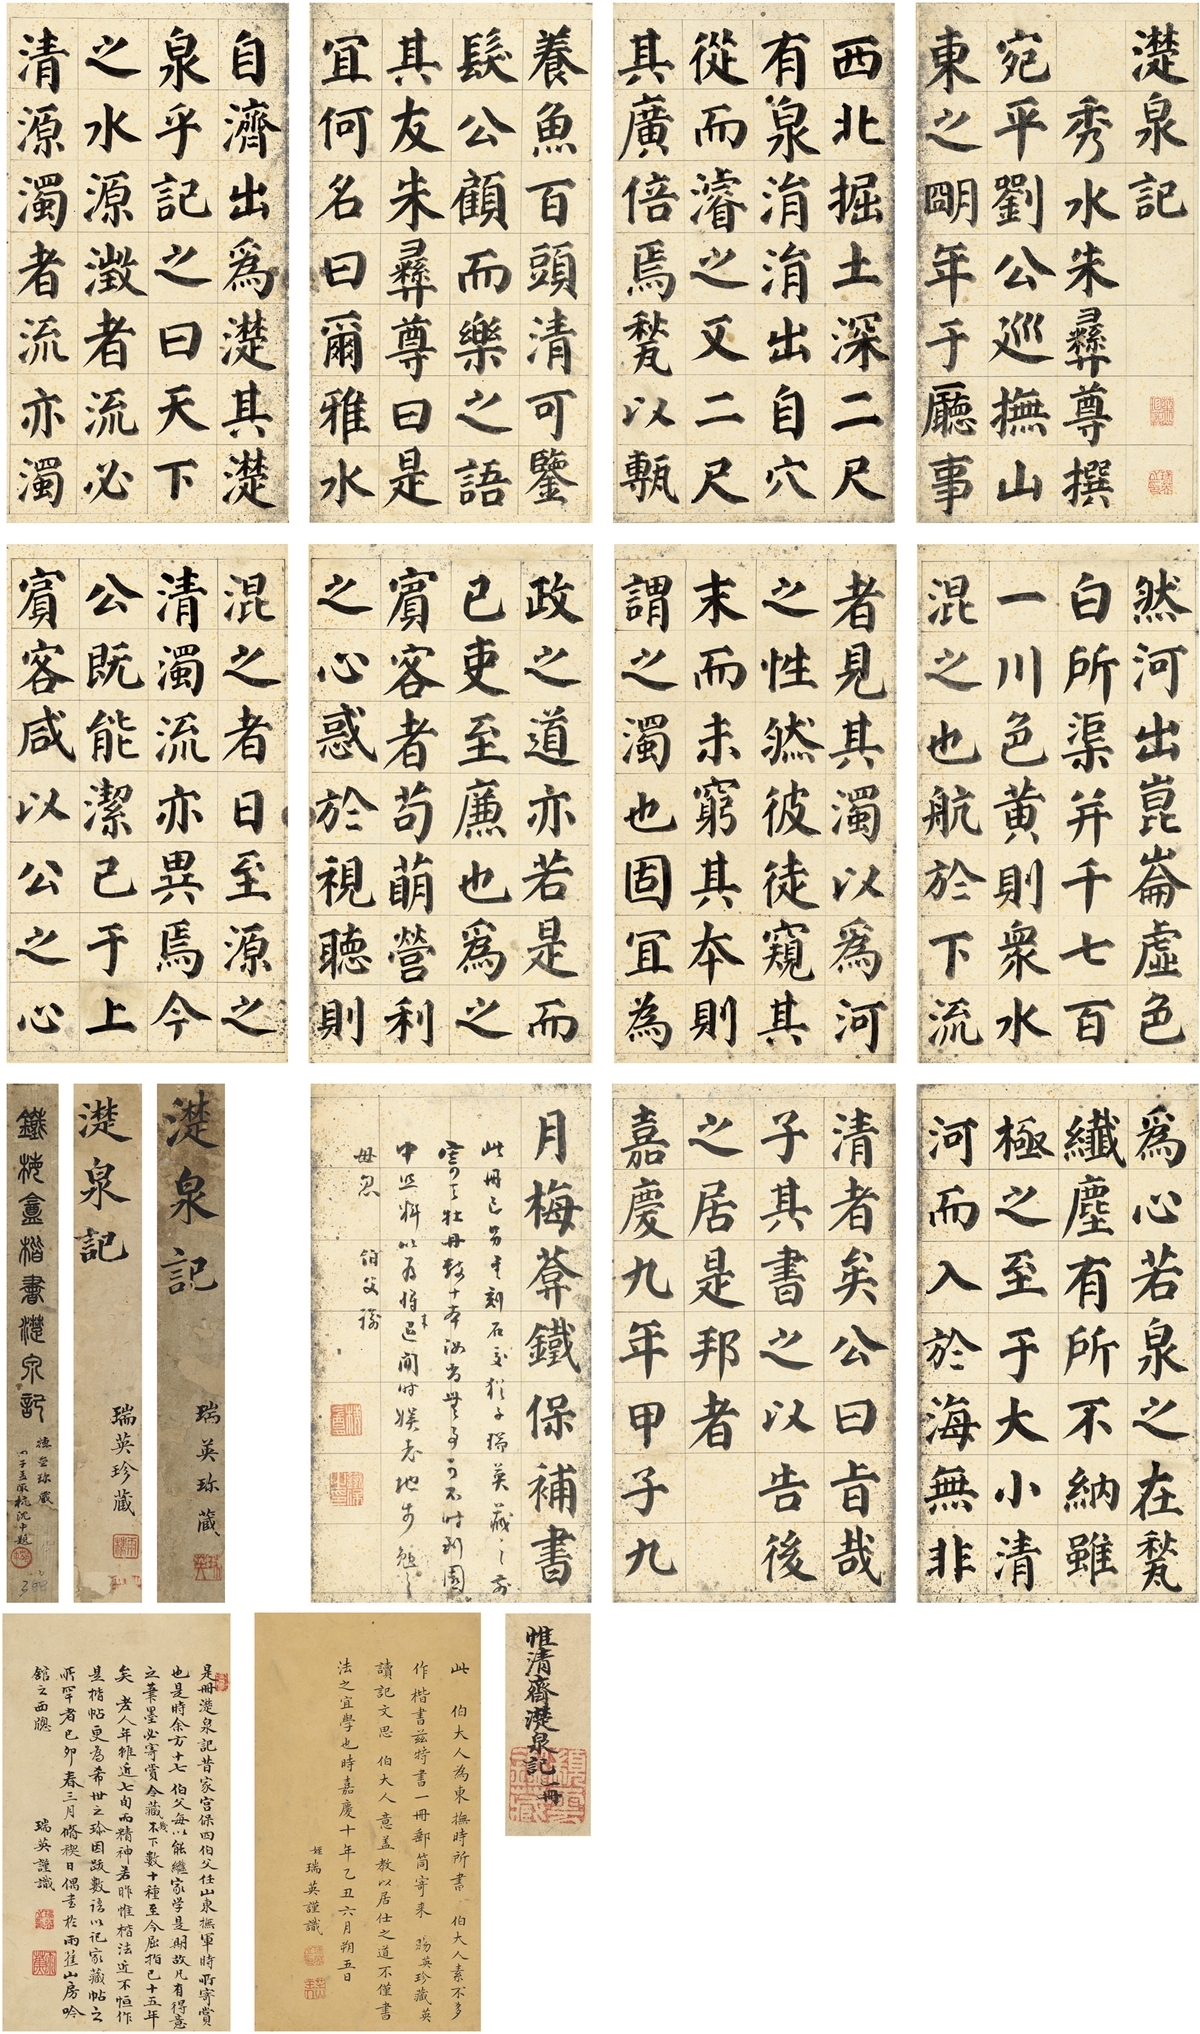 濋泉記
秀水朱彝尊撰
宛平劉公巡撫山
東之朙年于廳事
西北掘土深二尺
有泉涓涓出自穴
從而濬之又二尺
其廣倍焉甃以甎
養魚百頭清可鑒
髮公顧而樂之語
其友朱彝尊曰是
宜何名曰爾雅水
自濟出為濋其濋
泉乎記之曰天下
之水源澂者流必
清源濁者流亦濁
然河出崑崙虛色
白所渠并千七百
一川色黃則衆水
混之也航於下流
者見其濁以為河
之性然彼徒窺其
末而未窮其本則
謂之濁也固宜為
政之道亦若是而
已吏至廉也為之
賓客者苟萌營利
之心惑於視聽則
混之者日至源之
清濁流亦異焉今
公既能潔己于上
賓客咸以公之心
為心若泉之在甃
纖塵有所不納雖
極之至于大小清
河而入於海無非
清者矣公曰旨哉
子其書之以告後
之居是邦者
嘉慶九年甲子九
月梅葊鐵保補書
此冊已另刻石交猶子瑞英藏之前
牡丹數十本汝當時到園
中照料以為將來退閒時娛老地步勉之
毋忽 伯父諭
濋泉記 瑞英珎藏
濋泉記 瑞英珍藏
鐵梅盦楷書濋泉記
惟清齋濋泉記 一冊
此 伯大人為東撫時所書 伯大人素不多
作楷書茲特書一冊郵筒寄來 賜英珍藏英
讀記文思 伯大人意蓋教以居仕之道不僅書
法之宜學也時嘉慶十年乙丑六月朔五日
姪瑞英謹識
是冊濋泉記昔家宮保四伯父任山東撫軍時所寄賞
也是時余方十七 伯父每以能繼家学是期故凡有得意
之筆墨必寄賞今藏幾不下數十種至今屈指已十五年
矣 老人年雖近七旬而精神若昨惟楷法近不恒作
是楷帖更為希世之珎因跋數語以記家藏帖之
所罕者己卯春三月脩禊日偶書於雨蕉山房吟
館之西牕 瑞英謹識